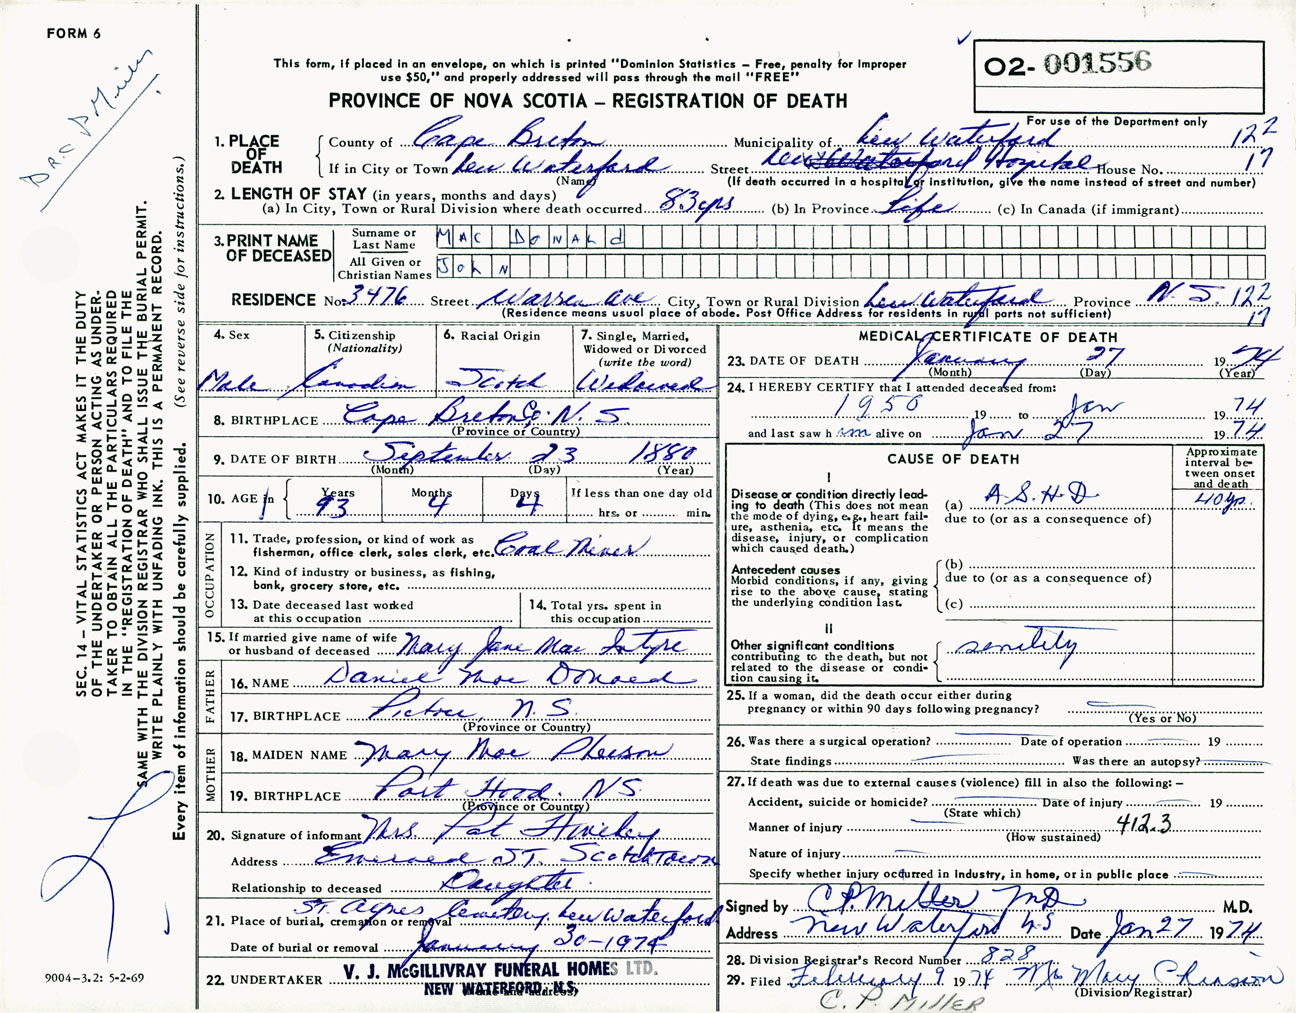 FORM 6
Dr. C. P. Miller
This form, if placed in an envelope, on which is printed "Dominion Statistics – Free, penalty for improper
use $50," and properly addressed will pass through the mail "FREE"
PROVINCE OF NOVA SCOTIA – REGISTRATION OF DEATH
O2- 001556
For use of the Department only
1. PLACE OF DEATH
County of Cape Breton Municipality of New Waterford 122
If in City or Town New Waterford Street New Waterford Hospital House No. 17
(Name) (If death occurred in a hospital or institution, give the name instead of street and number)
2. LENGTH OF STAY (in years, months and days)
(a) In City, Town or Rural Division where death occurred 83 yrs (b) In Province Life (c) In Canada (if immigrant)
3. PRINT NAME OF DECEASED
Surname or Last Name MAC DONALD
All Given or Christian Names JOHN
RESIDENCE No. 3476 Street Warren Ave City, Town or Rural Division New Waterford Province N.S. 122
(Residence means usual place of abode. Post Office Address for residents in rural parts not sufficient) 17
4. Sex Male
5. Citizenship (Nationality) Canadian
6. Racial Origin Scotch
7. Single, Married, Widowed or Divorced (write the word) Widowed
8. BIRTHPLACE Cape Breton Co. N.S.
(Province or Country)
9. DATE OF BIRTH September 23 1880
(Month) (Day) (Year)
10. AGE in Years 93 Months 4 Days 4 If less than one day old hrs. or min.
OCCUPATION
11. Trade, profession, or kind of work as
fisherman, office clerk, sales clerk, etc. Coal Miner
12. Kind of industry or business, as fishing,
bank, grocery store, etc.
13. Date deceased last worked at this occupation
14. Total yrs. spent in this occupation
15. If married give name of wife or husband of deceased Mary Jane Mac Intyre
FATHER
16. NAME Daniel Mac Donald
17. BIRTHPLACE Pictou, N.S.
(Province or Country)
MOTHER
18. MAIDEN NAME Mary Mac Pherson
19. BIRTHPLACE Port Hood. NS
(Province or Country)
20. Signature of informant Mrs. Pat
Address Emerald ST. Scotchtown
Relationship to deceased Daughter.
21. Place of burial, cremation or removal St. Agnes Cemetery, New Waterford
Date of burial or removal January 30-1974
22. UNDERTAKER V. J. McGILLIVRAY FUNERAL HOMES LTD.
NEW WATERFORD, N.S.
(Name and address)
MEDICAL CERTIFICATE OF DEATH
23. DATE OF DEATH January 27 1974
(Month) (Day) (Year)
24. I HEREBY CERTIFY that I attended deceased from:
1950 19 to Jan 1974
and last saw him alive on Jan 27 1974
CAUSE OF DEATH
Approximate interval between onset and death
I
Disease or condition directly lead-
ing to death (This does not mean
the mode of dying, e.g., heart fail-
ure, asthenia, etc. It means the
disease, injury, or complication
which caused death.)
(a) A.S.H.D. 40 yr.
due to (or as a consequence of)
Antecedent causes
Morbid conditions, if any, giving
rise to the above cause, stating
the underlying condition last.
(b)
due to (or as a consequence of)
(c)
II
Other significant conditions
contributing to the death, but not
related to the disease or condi-
tion causing it.
senility
25. If a woman, did the death occur either during
pregnancy or within 90 days following pregnancy?
(Yes or No)
26. Was there a surgical operation? Date of operation 19
State findings Was there an autopsy?
27. If death was due to external causes (violence) fill in also the following: –
Accident, suicide or homicide? Date of injury 19
(State which)
Manner of injury 412.3
(How sustained)
Nature of injury
Specify whether injury occurred in Industry, in home, or in public place
Signed by C.P. Miller MD M.D.
Address New Waterford N.S Date Jan 27 1974
28. Division Registrar's Record Number 828
29. Filed February 9 1974 Mrs Mary
(Division Registrar)
C. P. MILLER
SEC. 14 – VITAL STATISTICS ACT MAKES IT THE DUTY
OF THE UNDERTAKER OR PERSON ACTING AS UNDER-
TAKER TO OBTAIN ALL THE PARTICULARS REQUIRED
IN THE "REGISTRATION OF DEATH" AND TO FILE THE
SAME WITH THE DIVISION REGISTRAR WHO SHALL ISSUE THE BURIAL PERMIT.
WRITE PLAINLY WITH UNFADING INK. THIS IS A PERMANENT RECORD.
Every item of information should be carefully supplied. (See reverse side for instructions.)
9004-3.2: 5-2-69